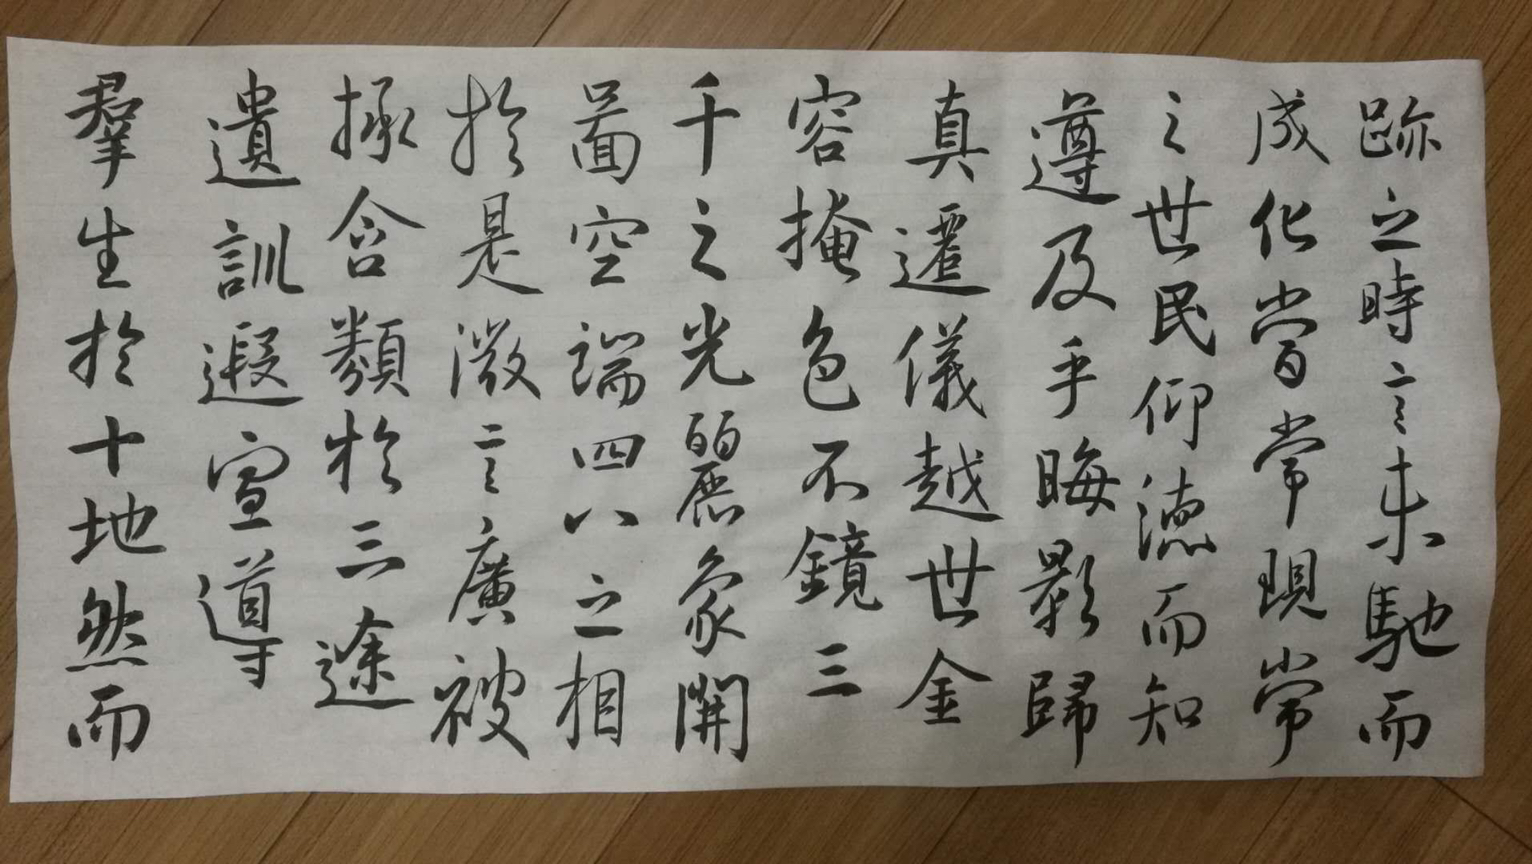 跡之時言未馳而
成化當常現常
之世民仰德而知
遵及乎晦影歸
真遷儀越世金
容掩色不鏡三
千之光麗象開
啚空端四八之相
於是微言廣被
拯含類於三途
遺訓遐宣導
羣生於十地然而